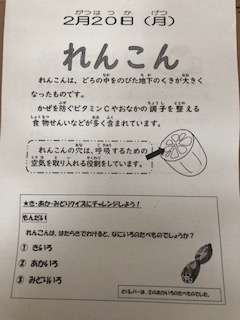 2月20日（月）
れんこん
れんこんは、どろの中をのびた地下のくきが大きく
なったものです。
かぜを防ぐビタミンCやおなかの調子を整える
食物せんいなどが多く含まれています。
れんこんの穴は、呼吸するための
空気を取り入れる役割をしています。
★き・あか・みどりクイズにチャレンジしよう！
もんだい
れんこんは、はたらきでわけると、なにいろのたべものでしょうか？
① きいろ
② あかいろ
③ みどりいろ